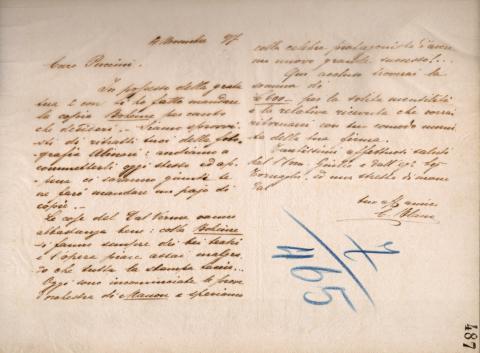 4 Novembre 97
Caro Puccini.
In possesso della grata
tua e con ti ho fatto mandare
la copia Bohème per canto
che desideri... siamo sprovvi-
sti di ritratti tuoi della foto-
grafia; andiamo a
commetterli oggi stesso ed ap-
pena ci saranno giunti te
ne farò mandare un pajo di
copie...
Le cose del Dal Verme vanno
abbastanza bene: colla Bohème
si fanno sempre dei bei teatri
e l'opera piace assai malgra-
do che tutta la stampa taccia...
Oggi sono incominciate le prove
d'orchestra di Manon e speriamo
colla celebre protagonista d'avere
un nuovo grande successo!...
Qui accluso troverai la
somma di
per la solita mensilità
e la relativa ricevuta che vorrai
ritornarmi con tuo comodo munita
della tua firma.
Tantissimi affettuosi saluti
dal Com. Giulio e dall'
Tornaghi, ed una stretta di mano
dal
tuo aff. amico
C. Blanc
7/465
487